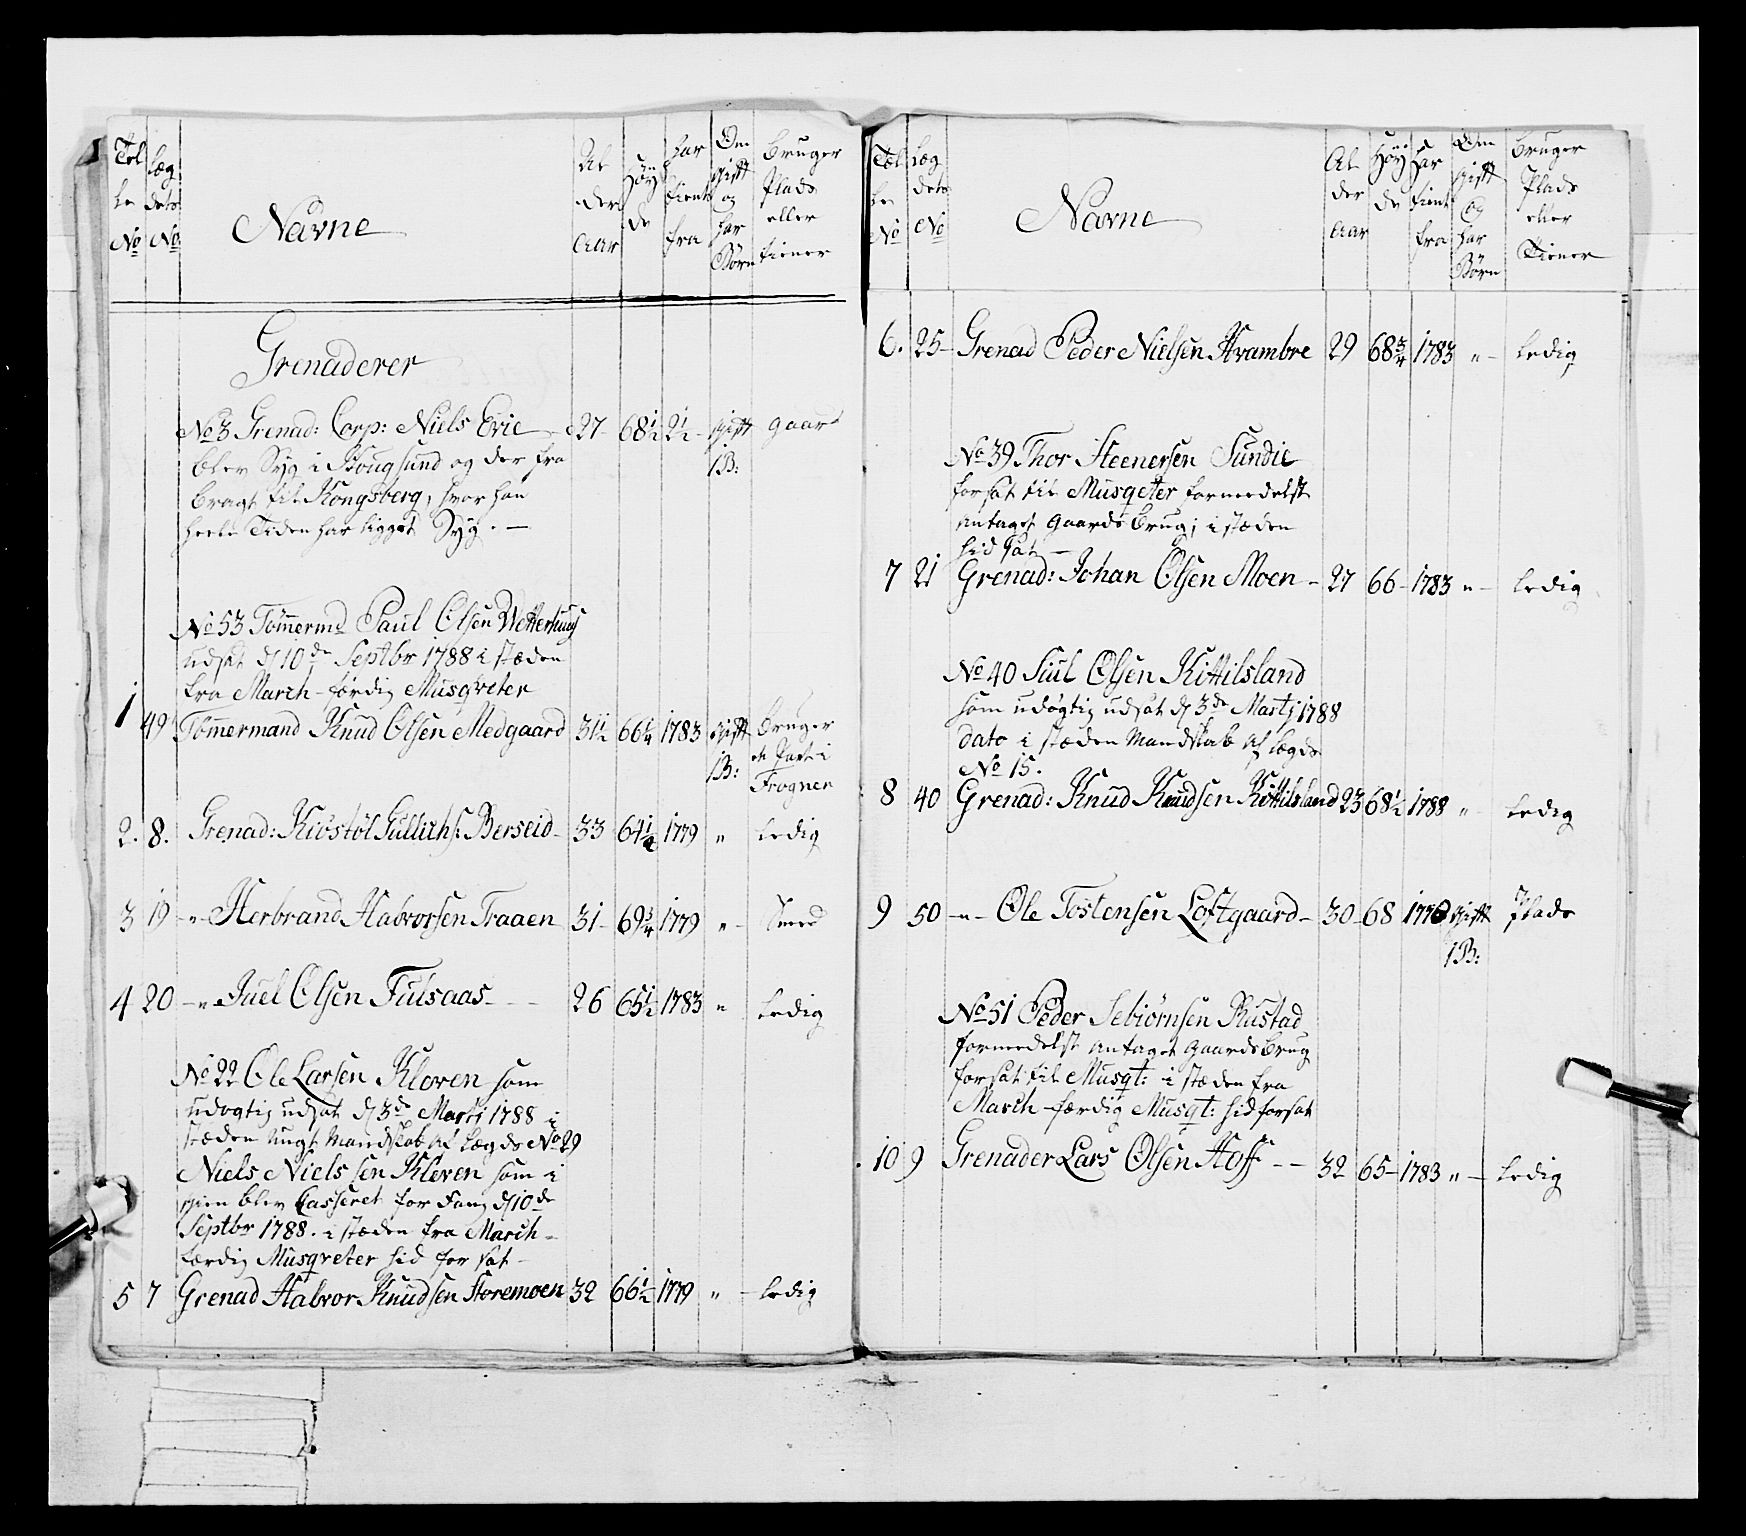 Tel
le
No
Læg
dets
No
Navne
Al
der
Aar
Höy
de
har
tient
fra
Om
gift
og
har
Börn
bruger
Plads
eller
tiener
Grenaderer
No 3 Grenad: Corp: Niels Evie 27 68½ 2½ gift gaard
blev Syg i Bougsund og der fra 1B:
bragt til Kongsberg, hvor han
heele Tiden har ligget Syg. —
No 53 Tömermd Paul Olsen Wettersuug
udsat d 10de Septbr 1788 i stæden
fra March-færdig Musqveter
1 49 Tömermand Knud Olsen Medgaard 31½ 66¼ 1783 gift bruger
1B: en Part i
Frognen
2. 8. Grenad: Kiöstöl Gullichs: Berseid 33 64½ 1779 " ledig
3 19 -"- Herbrand Halvorsen Traaen 31 69¾ 1779 " Smed
4 20 -"- Juel Olsen Fulsaas - - - 26 65½ 1783 " ledig
No 22 Ole Larsen Kloven som
udögtig udsat d 3de Martj 1788 i
stæden ungt Mandskab af Lægds No 29
Niels Nielssen Kleven som i
gien blev Casseret for Fang d 10de
Septbr 1788. i stæden fra March-
færdig Musqveter hid forsat -
5 7 Grenad Halvor Knudsen Storemoen 32 66½ 1779 " - ledig
Tæl
le
No
Læg
dets
No
Navne
Al
der
Aar
Höy
de
har
tient
fra
Om
gift
og
har
Börn
bruger
Plads
eller
Tiener
6. 25- Grenad Peder Nielsen Hvambre 29 68¾ 1783 " - ledig
No 39 Thor Steenersen Sundie
forsat til Musqeter formedelst
antaget gaards brug; i stæden
hid sat —
7 21 Grenad: Johan Olsen Moen - 27 66 - 1783 " - ledig
No 40 Juul Olsen Kittilsland
som udögtig udsat d 3de Martj 1788
dato i stæden Mandskab af Lægds
No 15.
8 40 Grenad: Knud Knudsen Kittilsland 23 68½ 1788 " ledig
9 50 -"- Ole Tostensen Loftgaard - 30 - 68 1776 gift Plads
1B:
No 51 Peder Sebiörnsen Rustad
formedelst antaget gaardsbrug
forsat til Musqt: i stæden fra
March-færdig Musqt: hid forsat
10 9 Grenader Lars Olsen Hoff - - 32 65 - 1783 " - ledig